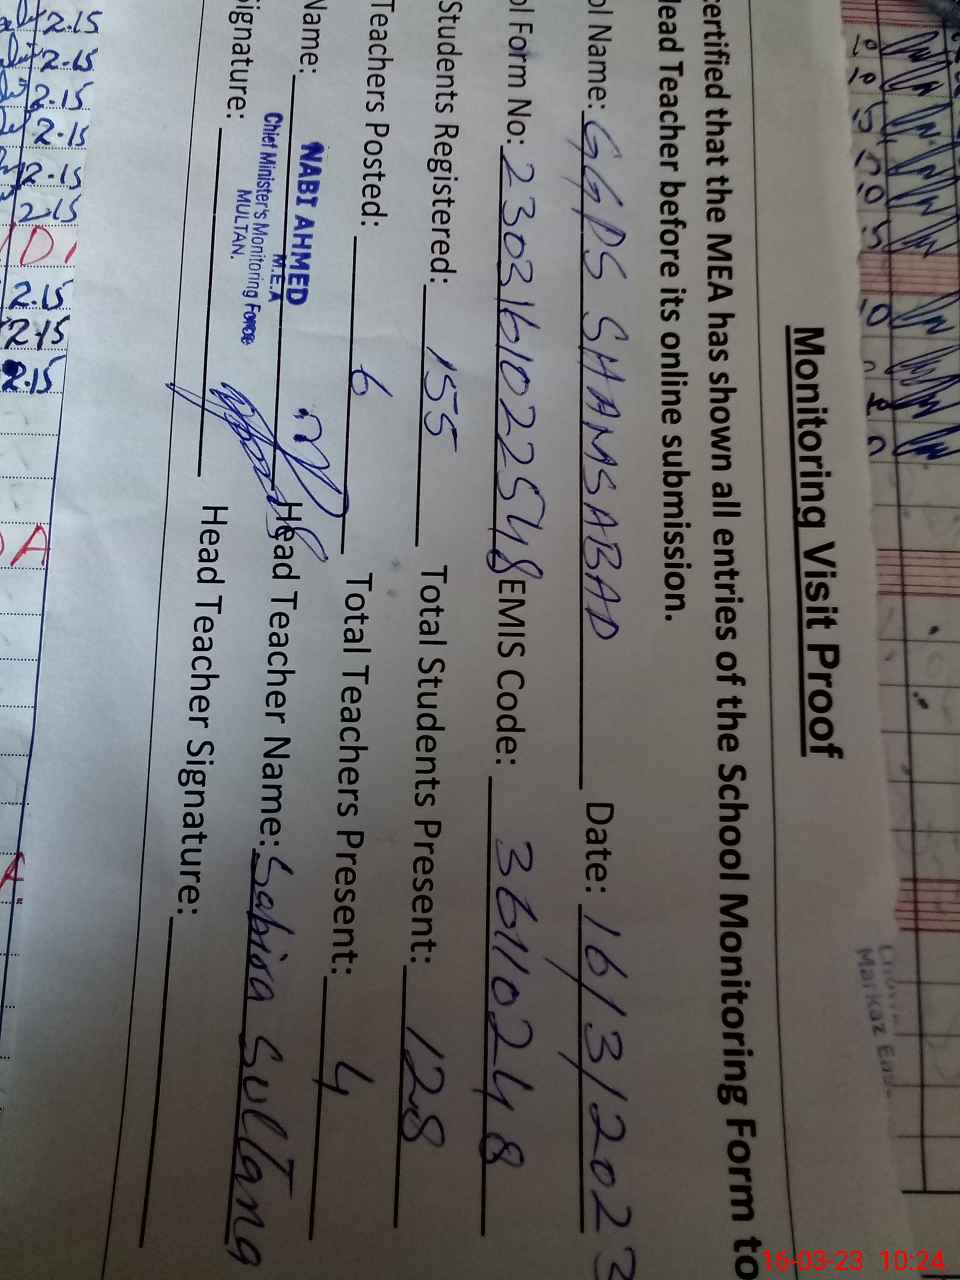 Monitoring Visit Proof
certified that the MEA has shown all entries of the School Monitoring Form to
Head Teacher before its online submission.
ol Name: GGPS SHAMSABAD Date: 16/3/2023
ol Form No: 2303161022548 EMIS Code: 36110248
Students Registered: 155 Total Students Present: 128
Teachers Posted: 6 Total Teachers Present: 4
Name: NABI AHMED Head Teacher Name: Sabira Sultana
M.E.A
Chief Minister's Monitoring Force
MULTAN.
Signature: Head Teacher Signature:
2.15
2.15
2.15
2.15
2.15
2.15
D
2.15
2.15
2.15
A
A
Markaz
16-03-23 10:24